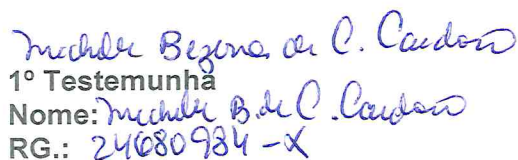 Michele Bezerra de C. Cardoso
1º Testemunha
Nome: Michele B. de C. Cardoso
RG.: 24680984-X